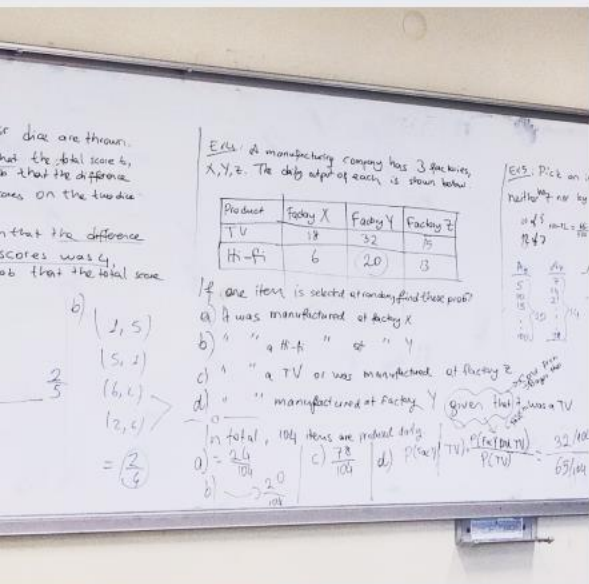 dice are thrown.
the total score is,
that the difference
on the two dice
that the difference
scores was 4,
that the total score
b) (1,5)
(5,1)
(6,2)
(2,6)
2/5
= 2/4
Ex14: A manufacturing company has 3 factories,
X, Y, Z. The daily output of each is shown below
Product Factory X Factory Y Factory Z
TV 18 32 15
Hi-fi 6 20 13
If one item is selected at random, find these prob?
a) It was manufactured at factory X
b) " " a Hi-fi " at " Y
c) " " a TV or was manufactured at factory Z
d) " " manufactured at Factory Y given that it was a TV
In total, 104 items are produced daily
a) = 24/104
b) 20/104
c) 78/104
d) P(FacY | TV) = P(FacY and TV)/P(TV) = 32/104 65/104
Ex15: Pick an
neither by nor by